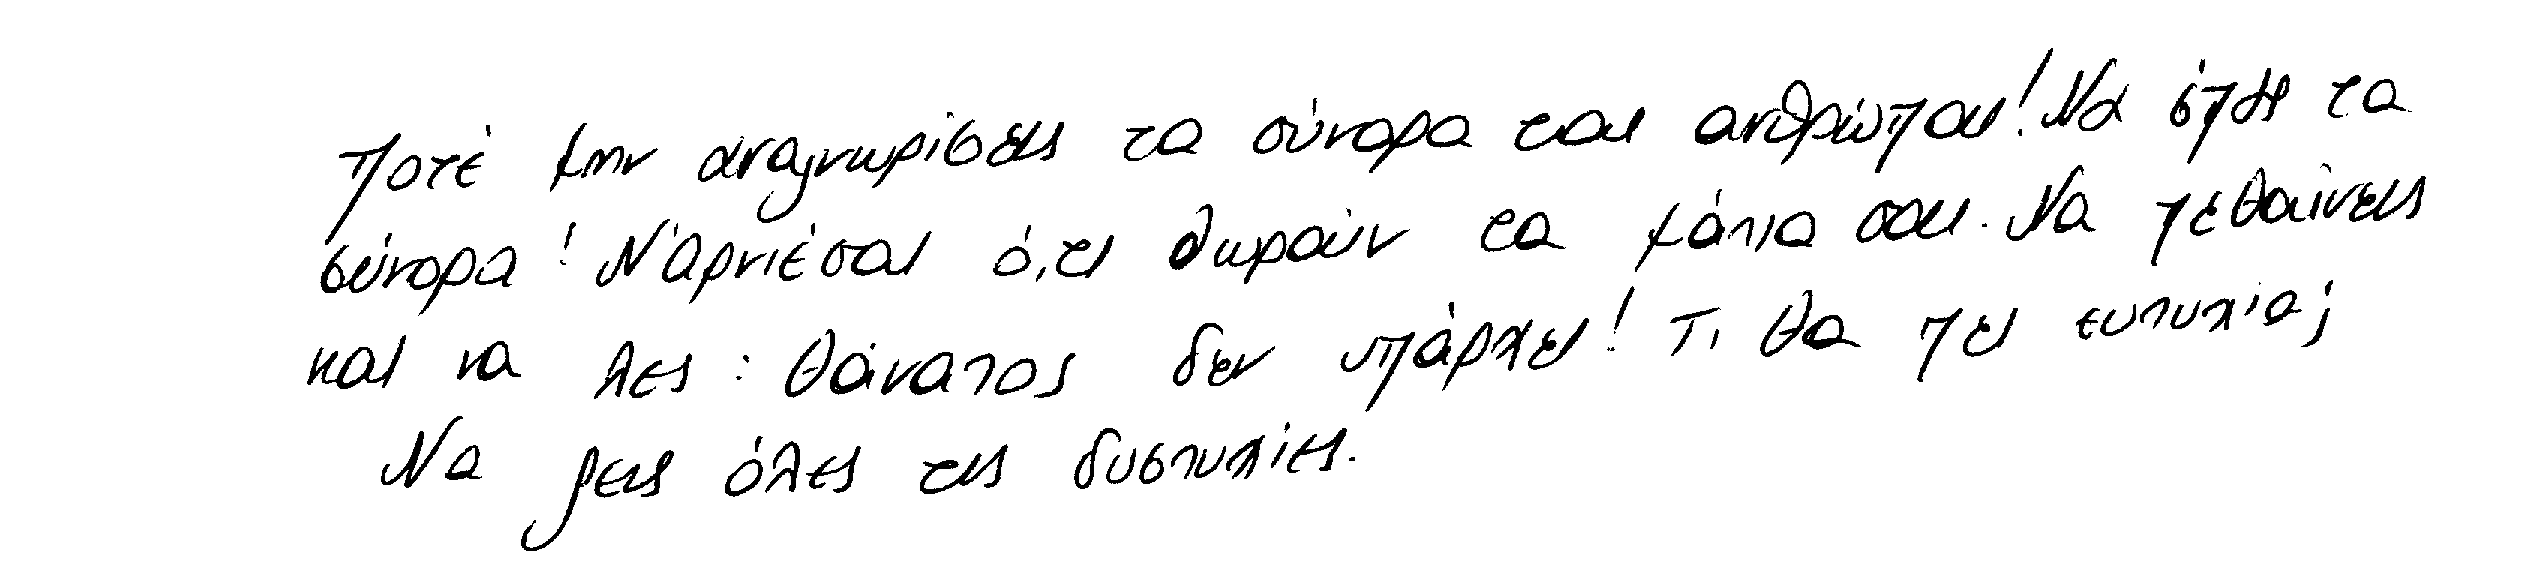 Ποτέ μην αναγνωρίσεις τα σύνορα του ανθρώπου! Να σπας τα
σύνορα! Ν'αρνιέσαι ό,τι θωρούν τα μάτια σου. Να πεθαίνεις
και να λες: θάνατος δεν υπάρχει! Τι θα πει ευτυχία;
Να ζεις όλες τις δυστυχίες.